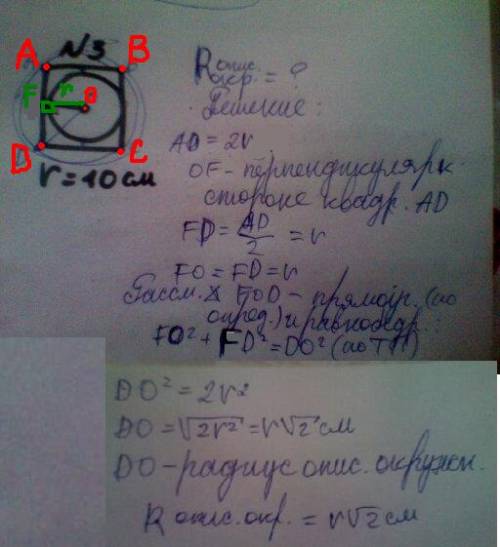 N3
A
B
F
r
O
D
C
r = 10 см
R опис. окр. = ?
Решение:
AD = 2r
OF - перпендикулярн.
стороне квадр. AD
FD = AD/2 = r
FO = FD = r
Рассм. △ FOD - прямоуг. (по
опред.) и равнобедр.:
FO² + FD² = DO² (по ТП)
DO² = 2r²
DO = √2r² = r√2 см
DO - радиус опис. окружн.
R опис. окр. = r√2 см